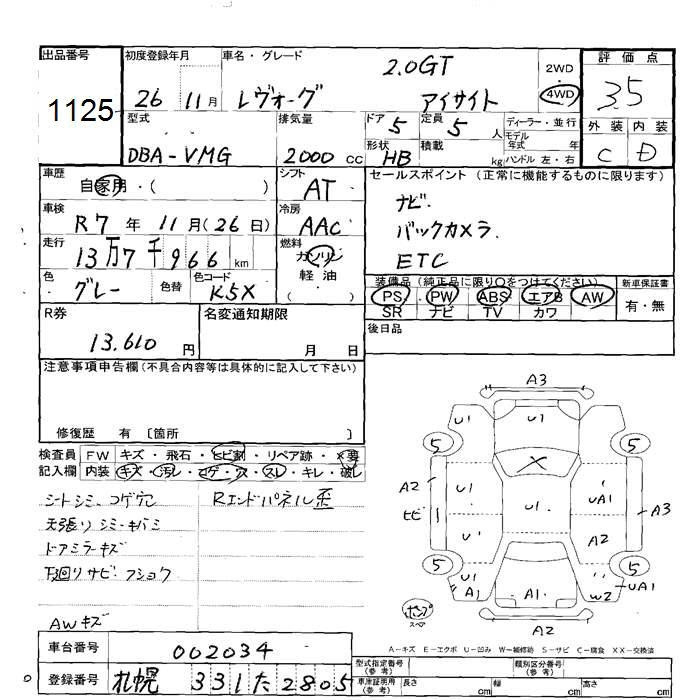 出品番号
1125
初度登録年月
26 11月
車名・グレード
レヴォーグ
2.0GT
アイサイト
2WD
4WD
評価点
3.5
外装 内装
C D
型式
DBA-VMG
排気量
2000 cc
ドア 5
定員 5 人
形状 HB
積載 kg
ディーラー・並行
モデル年式 年
ハンドル 左・右
車歴
自家用・( )
シフト
AT
セールスポイント (正常に機能するものに限ります)
ナビ.
バックカメラ.
ETC
車検
R7年 11月(26日)
冷房
AAC
走行
13万7千966 km
燃料
ガソリン
軽油
( )
色
グレー
色替
色コード
K5X
装備品 (純正品に限り○をつけてください)
PS PW ABS エアB AW
SR ナビ TV カワ
新車保証書
有・無
R券
13.610 円
名変通知期限
月 日
後日品
注意事項申告欄(不具合内容等は具体的に記入して下さい)
修復歴 有 〔箇所 〕
検査員記入欄
FW キズ・飛石・ヒビ割・リペア跡・×要
内装 キズ・汚レ・コゲ・穴・スレ・キレ・破レ
シートシミ、コゲ穴
Rエンドパネル歪
天張りシミ・キバミ
ドアミラーキズ
下廻りサビ・フショク
AWキズ
A3
U1 U1
5 5
X
A2 U1 UA1 A3
ヒビ 1 U1
U1 A2
5 5
U1 UA1
A1 A1 W2
A2
ポンプ
スペア
A-キズ E-エクボ U-凹み W-補修跡 S-サビ C-腐食 XX-交換済
車台番号
002034
登録番号
札幌 331 た 2805
型式指定番号
(参考)
類別区分番号
(参考)
車庫証明用
(参考)
長さ cm
幅 cm
高さ cm